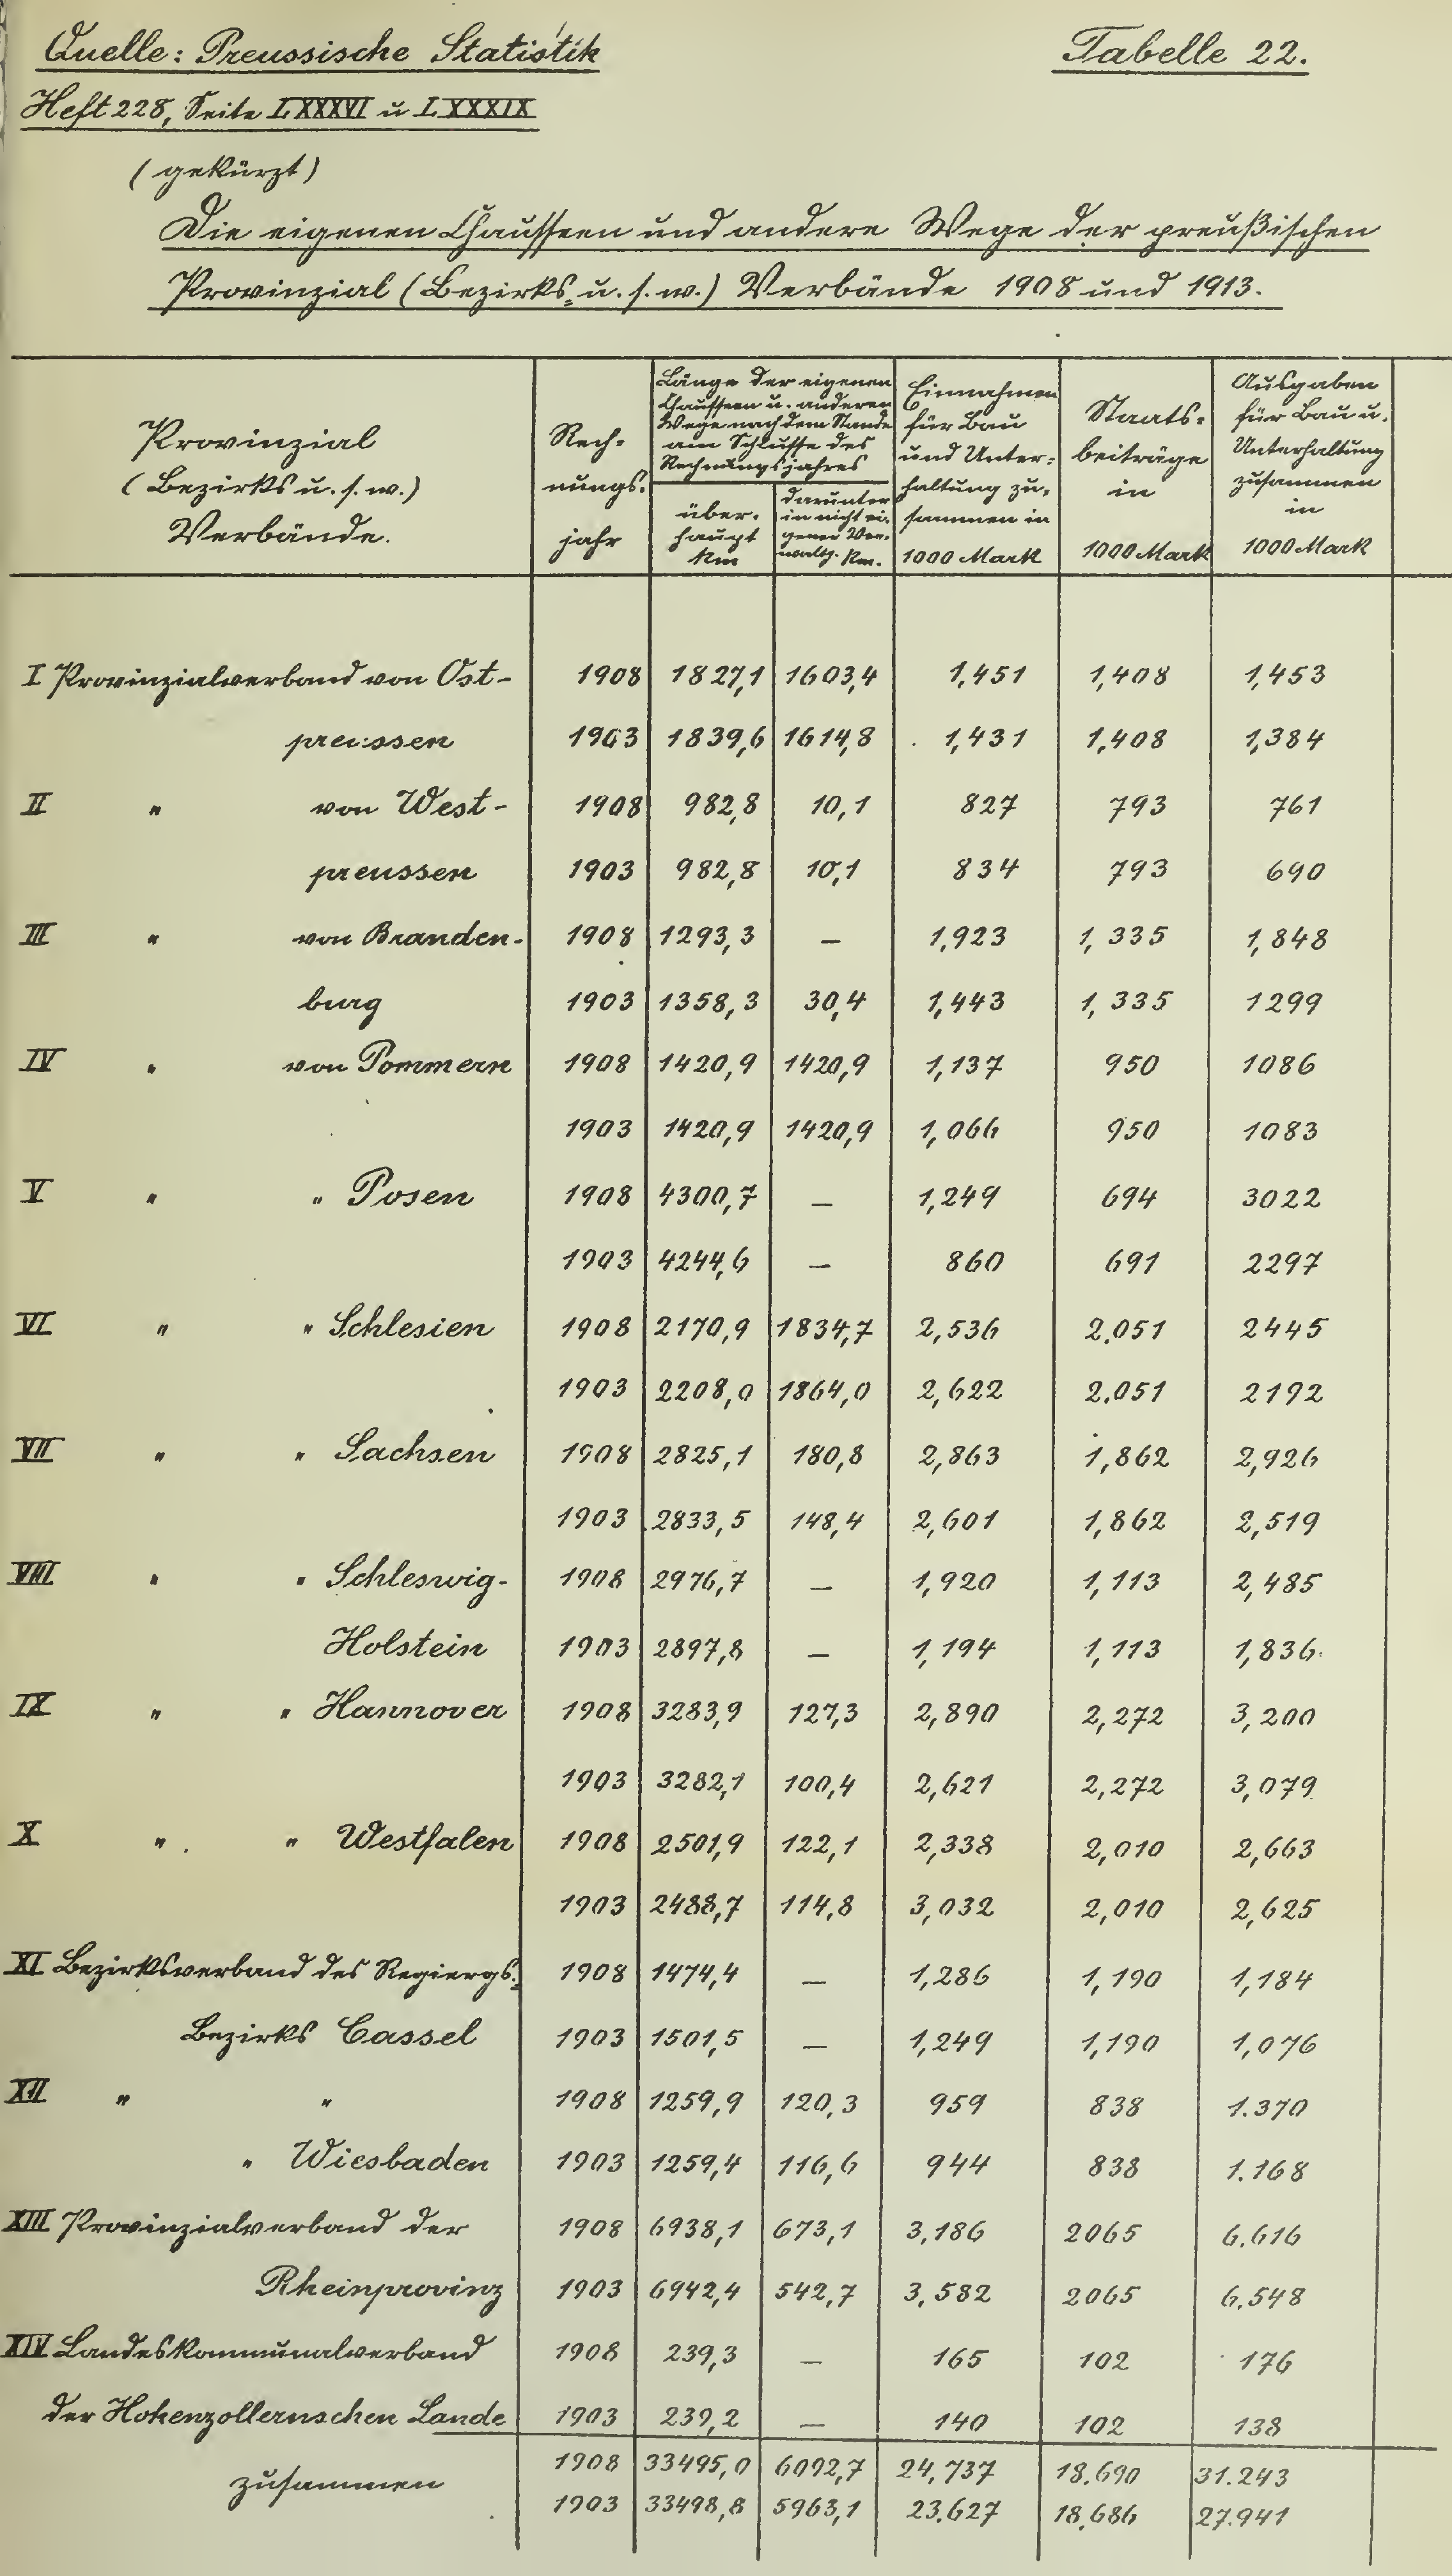 Quelle: Preussische Statistik
Tabelle 22.
Heft 228, Seite LXXXVI u LXXXIX
(gekürzt)
Die eigenen Chausseen und andere Wege der preußischen
Provinzial (Bezirks- u. s. w.) Verbände 1908 und 1913.
Provinzial
(Bezirks u. s. w.)
Verbände.
Rech-
nungs-
jahr
Länge der eigenen
Chausseen u. anderen
Wege nach dem Stande
am Schlusse des
Rechnungsjahres
über-
haupt
km
darunter
in nicht ei-
gener Ver-
waltg. km.
Einnahmen
für Bau
und Unter-
haltung zu-
sammen in
1000 Mark
Staats-
beiträge
in
1000 Mark
Ausgaben
für Bau u.
Unterhaltung
zusammen
in
1000 Mark
I Provinzialverband von Ost- 1908 1827,1 1603,4 1,451 1,408 1,453
preussen 1903 1839,6 1614,8 1,431 1,408 1,384
II " von West- 1908 982,8 10,1 827 793 761
preussen 1903 982,8 10,1 834 793 690
III " von Branden- 1908 1293,3 — 1,923 1,335 1,848
burg 1903 1358,3 30,4 1,443 1,335 1299
IV " von Pommern 1908 1420,9 1420,9 1,137 950 1086
1903 1420,9 1420,9 1,066 950 1083
V " " Posen 1908 4300,7 — 1,249 694 3022
1903 4244,6 — 860 691 2297
VI " " Schlesien 1908 2170,9 1834,7 2,536 2.051 2445
1903 2208,0 1864,0 2,622 2.051 2192
VII " " Sachsen 1908 2825,1 180,8 2,863 1,862 2,926
1903 2833,5 148,4 2,601 1,862 2,519
VIII " " Schleswig- 1908 2976,7 — 1,920 1,113 2,485
Holstein 1903 2897,8 — 1,194 1,113 1,836
IX " " Hannover 1908 3283,9 127,3 2,890 2,272 3,200
1903 3282,1 100,4 2,621 2,272 3,079
X " " Westfalen 1908 2501,9 122,1 2,338 2,010 2,663
1903 2488,7 114,8 3,032 2,010 2,625
XI Bezirksverband des Regiergs.- 1908 1474,4 — 1,286 1,190 1,184
Bezirks Cassel 1903 1501,5 — 1,249 1,190 1,076
XII " " 1908 1259,9 120,3 959 838 1.370
" Wiesbaden 1903 1259,4 116,6 944 838 1.168
XIII Provinzialverband der 1908 6938,1 673,1 3,186 2065 6.616
Rheinprovinz 1903 6942,4 542,7 3,582 2065 6.548
XIV Landeskommunalverband 1908 239,3 — 165 102 176
der Hohenzollernschen Lande 1903 239,2 — 140 102 138
zusammen 1908 33495,0 6092,7 24,737 18.690 31.243
1903 33498,8 5963,1 23.627 18.686 27.941